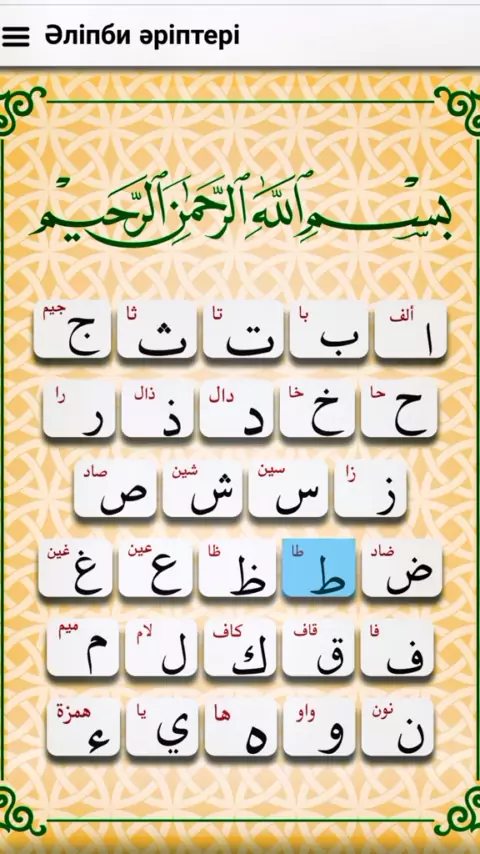 Әліпби әріптері
بِسْمِ ٱللَّهِ ٱلرَّحْمَٰنِ ٱلرَّحِيمِ
ألف با تا ثا جيم
ا ب ت ث ج
حا خا دال ذال را
ح خ د ذ ر
زا سين شين صاد
ز س ش ص
ضاد طا ظا عين غين
ض ط ظ ع غ
فا قاف كاف لام ميم
ف ق ك ل م
نون واو ها يا همزة
ن و ه ي ء